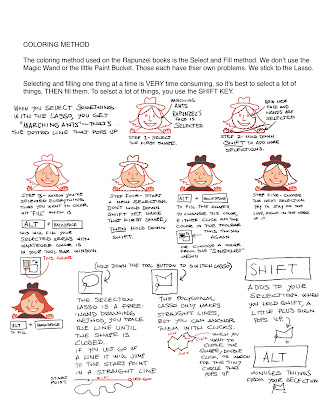 COLORING METHOD
The coloring method used on the Rapunzel books is the Select and Fill method. We don't use the
Magic Wand or the little Paint Bucket. Those each have thier own problems. We stick to the Lasso.
Selecting and filling one thing at a time is VERY time consuming, so it's best to select a lot of
things, THEN fill them. To select a lot of things, you use the SHIFT KEY.
WHEN YOU SELECT SOMETHING
WITH THE LASSO, YOU GET
"MARCHING ANTS" - THAT'S
THE DOTTED LINE THAT POPS UP
MARCHING
ANTS
RAPUNZEL'S
FACE IS
SELECTED
STEP 1- SELECT
THE FIRST SHAPE.
NOW HER
FACE AND
HANDS ARE
SELECTED
STEP 2- HOLD DOWN
SHIFT TO ADD MORE
SELECTIONS.
STEP 3- WHEN YOU'VE
SELECTED EVERYTHING
THAT YOU WANT TO COLOR,
HIT FILL WHICH IS
ALT + BACKSPACE
THIS WILL FILL YOUR
SELECTED AREAS WITH
WHATEVER COLOR IS
IN YOUR TOOL BAR WINDOW.
THIS COLOR
STEP FOUR - START
A NEW SELECTION.
DON'T HOLD DOWN
SHIFT YET. MAKE
THAT FIRST SHAPE,
THEN HOLD DOWN
SHIFT.
ALT + BACKSPACE
TO FILL THE SHAPES
TO CHANGE THE COLOR,
EITHER CLICK ON THE
COLOR IN THE TOOLBAR
THIS THING
AGAIN
OR CHOOSE A COLOR
FROM THE "SWATCHES"
MENU
STEP FIVE - CHOOSE
THE NEXT SELECTION.
TRY TO STAY ON THE
LINE, RIGHT IN THE MIDDLE
OF IT.
ALT + BACKSPACE
TO FILL
(HOLD DOWN THE TOOL BUTTON TO SWITCH LASSO)
THE SELECTION
LASSO IS A FREE-
HAND DRAWING
METHOD. YOU TRACE
THE LINE UNTIL
THE SHAPE IS
CLOSED.
IF YOU LET GO OF
A LINE IT WILL JUMP
TO THE START POINT
IN A STRAIGHT LINE
START
POINT
LET GO
THE POLYGONAL
LASSO ONLY MAKES
STRAIGHT LINES,
BUT YOU CAN ANCHOR
THEM WITH CLICKS.
CLICK
CLICK
CLICK
WHEN YOU WANT
TO CLOSE THE
SHAPE, DOUBLE
CLICK, OR WATCH
FOR THE TINY
CIRCLE THAT
POPS UP.
SHIFT
ADDS TO YOUR
SELECTION. WHEN
YOU HOLD SHIFT, A
LITTLE PLUS SIGN
POPS UP.
ALT
MINUSES
THINGS
FROM YOUR SELECTION